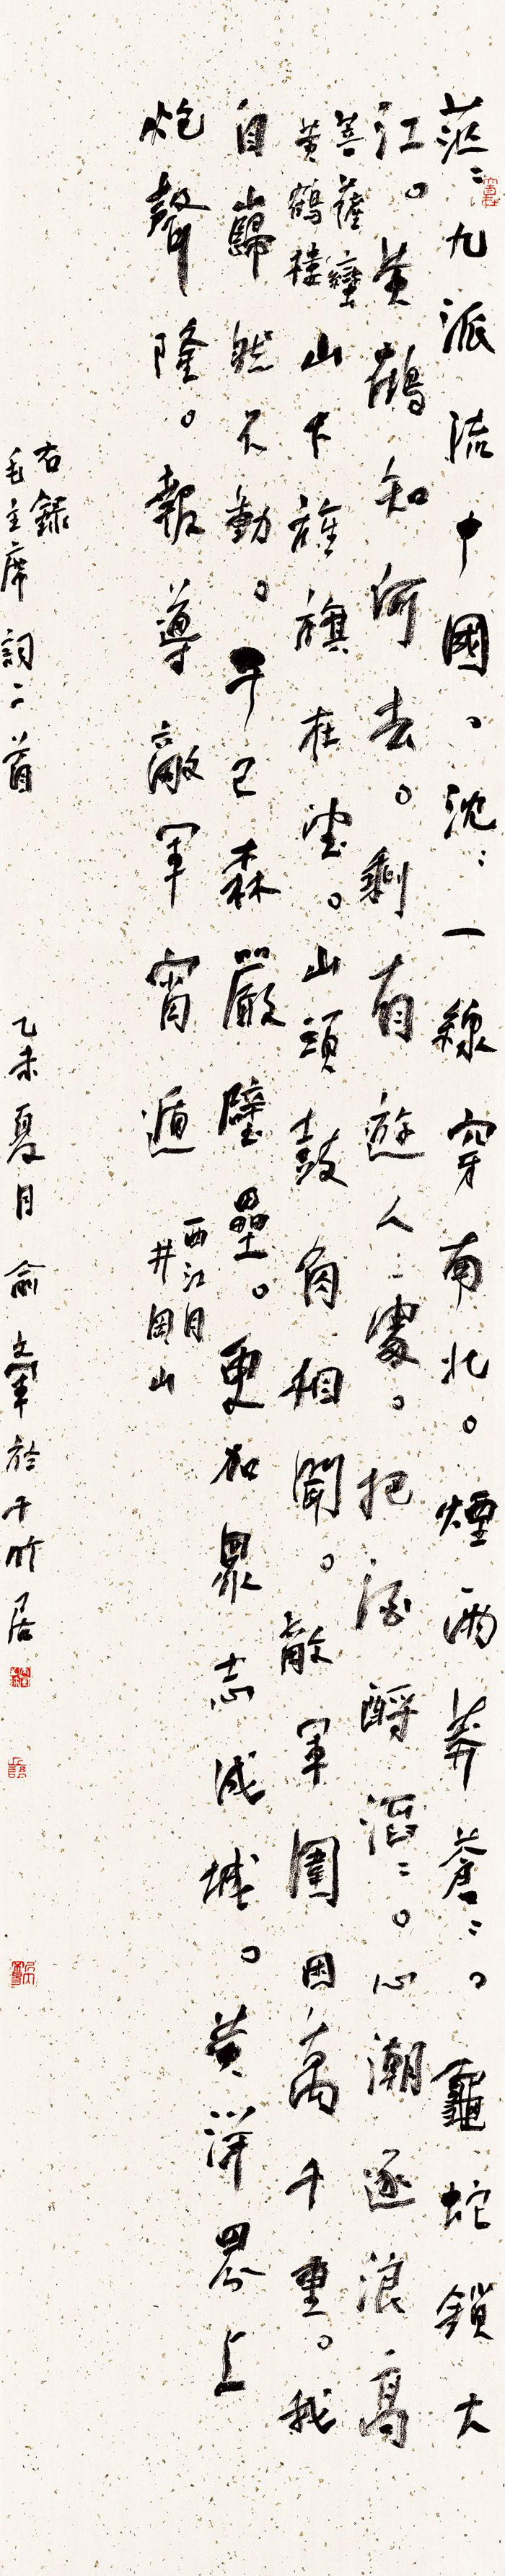 茫〻九派流中國。沈〻一線穿南北。煙雨莽蒼〻。龜蛇鎖大
江。黃鶴知何去。剩有遊人處。把酒酹滔〻。心潮逐浪高
菩薩蠻
黃鶴樓
山下旌旗在望。山頭鼓角相聞。敵軍圍困萬千重。我
自巋然不動。早已森嚴壁壘。更加眾志成城。黃洋界上
炮聲隆。報導敵軍宵遁
西江月
井岡山
右錄
毛主席詞二首
乙未夏月俞於千竹居